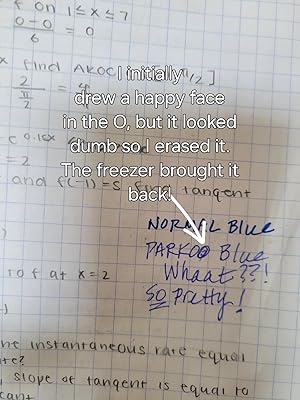 f on 1 ≤ x ≤ 7
0-0
6
= 0
x find AROC
π/2]
2
π
2
I initially
drew a happy face
in the O, but it looked
dumb so I erased it.
The freezer brought it
back!
= 2
and f(-1)=5
tangent
NORMAL Blue
PARKOO Blue
Whaat??!
SO Pretty!
to f at x=2
instantaneous rate equal
slope of tangent is equal to